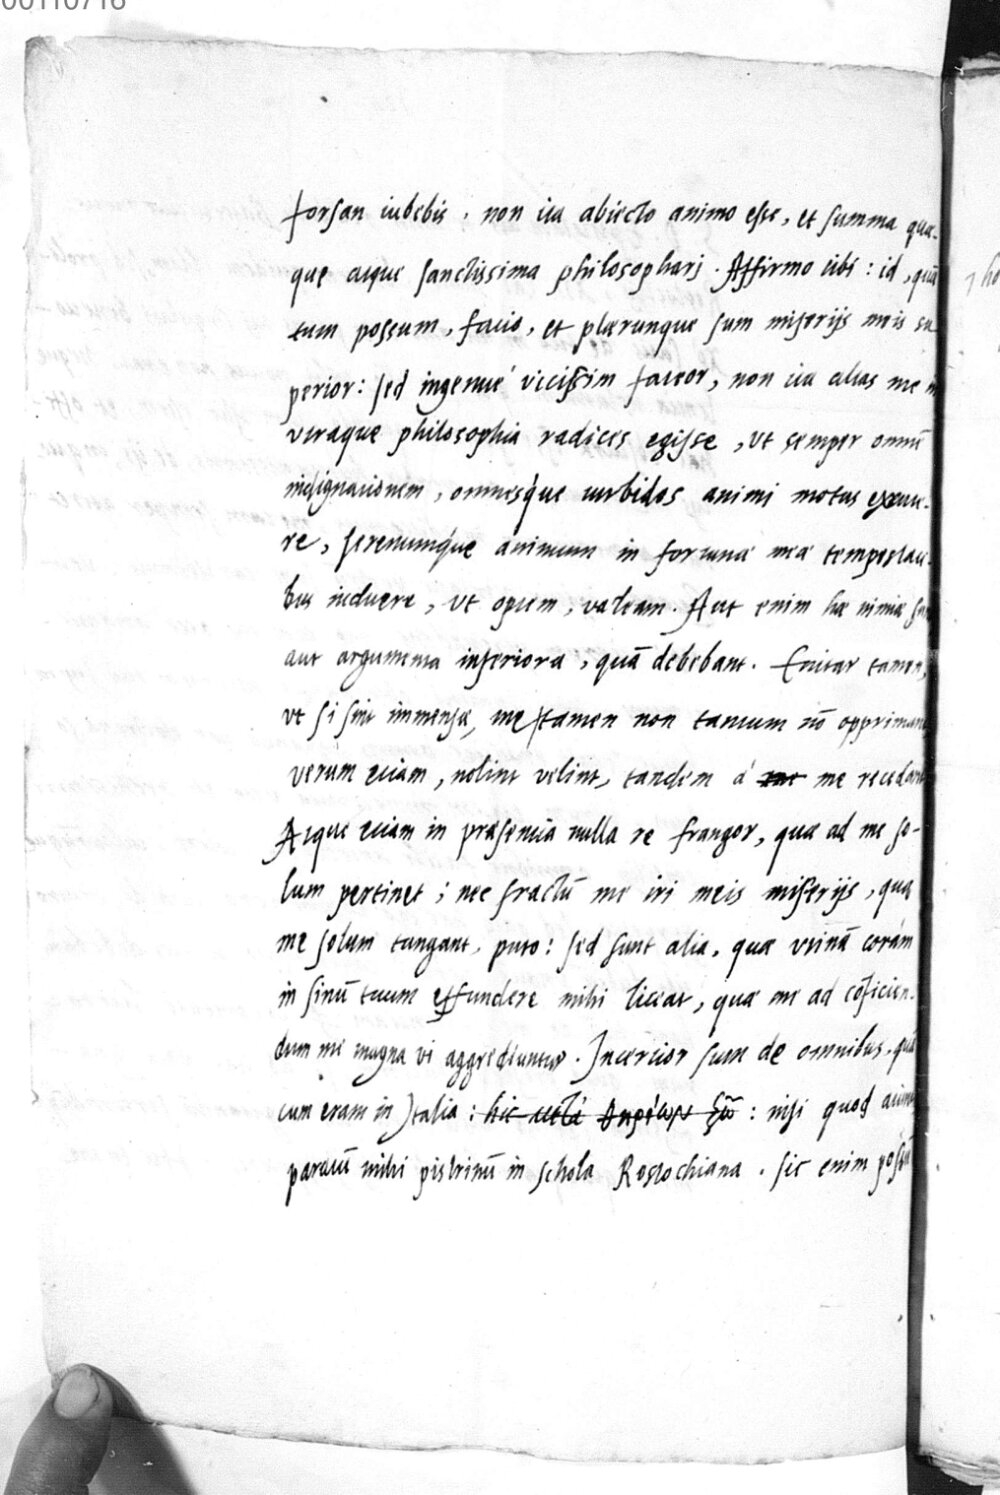 00110716
forsan iubebis, non ita abiecto animo esse, et summa quæ-
que atque sanctissima philosophari. Affirmo tibi: id, quã
tum possum, facio, et plærunque sum miserijs meis su
perior: sed ingenué vicißim fateor, non ita altas me in
vtraque philosophia radices egisse, vt semper omnẽ
indignationem, omnesq́ue turbidos animi motus exue-
re, serenumq́ue animum in fortunæ meæ tempestati-
bus induere, vt optem, valeam. Aut enim hæ nimiæ
aut argumenta inferiora, quã debebant. Enitar tamen,
vt si sint immensæ, me tamen non tantum nõ opprimant
verum etiam, nolint velint, tandem á me me recedant
Atque etiam in præsentia nulla re frangor, quæ ad me so-
lum pertinet; nec fractũ me iri meis miserijs, quæ
me solum tangant, puto: sed sunt alia, quæ vtinã coràm
in sinũ tuum effundere mihi liceat, quæ me ad cõficien-
dum me magna vi aggrediuntur. Incertior sum de omnibus, quã
cum eram in Italia: hic μετὰ θηρίων ζῶ: nisi quod aiunt
paratũ mihi pistrinũ in schola Rostochiana. Sic enim